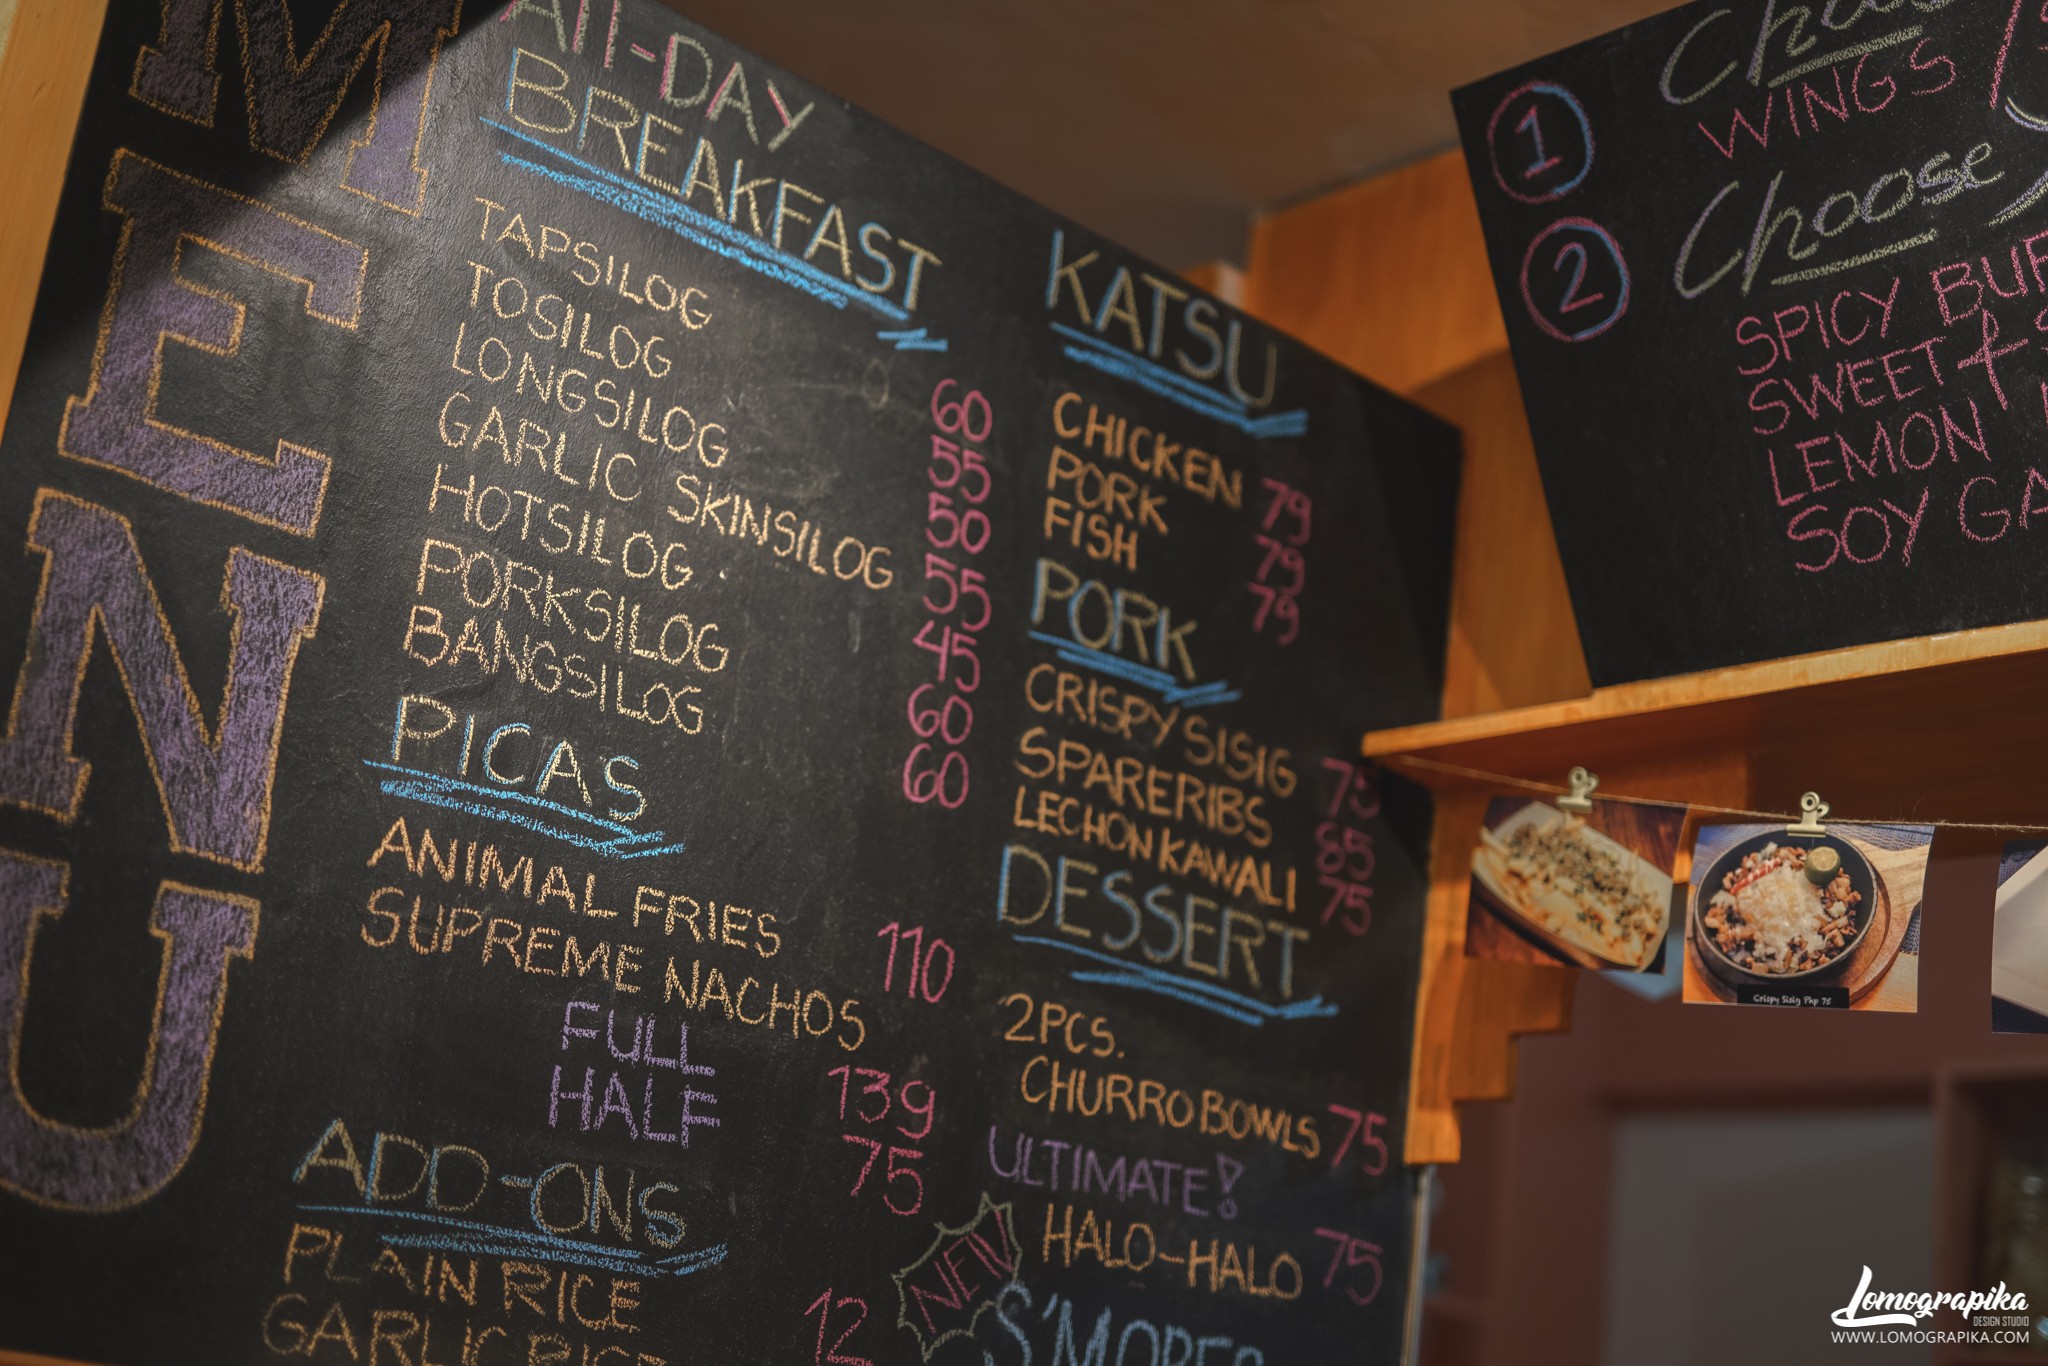 MENU
All-DAY
BREAKFAST
TAPSILOG 60
TOSILOG 55
LONGSILOG 50
GARLIC SKINSILOG 55
HOTSILOG 45
PORKSILOG 60
BANGSILOG 60
PICAS
ANIMAL FRIES 110
SUPREME NACHOS
FULL 139
HALF 75
ADD-ONS
PLAIN RICE 12
GARLIC RICE
KATSU
CHICKEN 79
PORK 79
FISH 79
PORK
CRISPY SISIG 75
SPARERIBS 85
LECHON KAWALI 75
DESSERT
2PCS.
CHURRO BOWLS 75
ULTIMATE!
HALO-HALO 75
NEW
S'MORES
1
WINGS
2 Choose
SPICY
SWEET +
LEMON
SOY
Crispy Sisig Php 75
Lomograpika
DESIGN STUDIO
WWW.LOMOGRAPIKA.COM